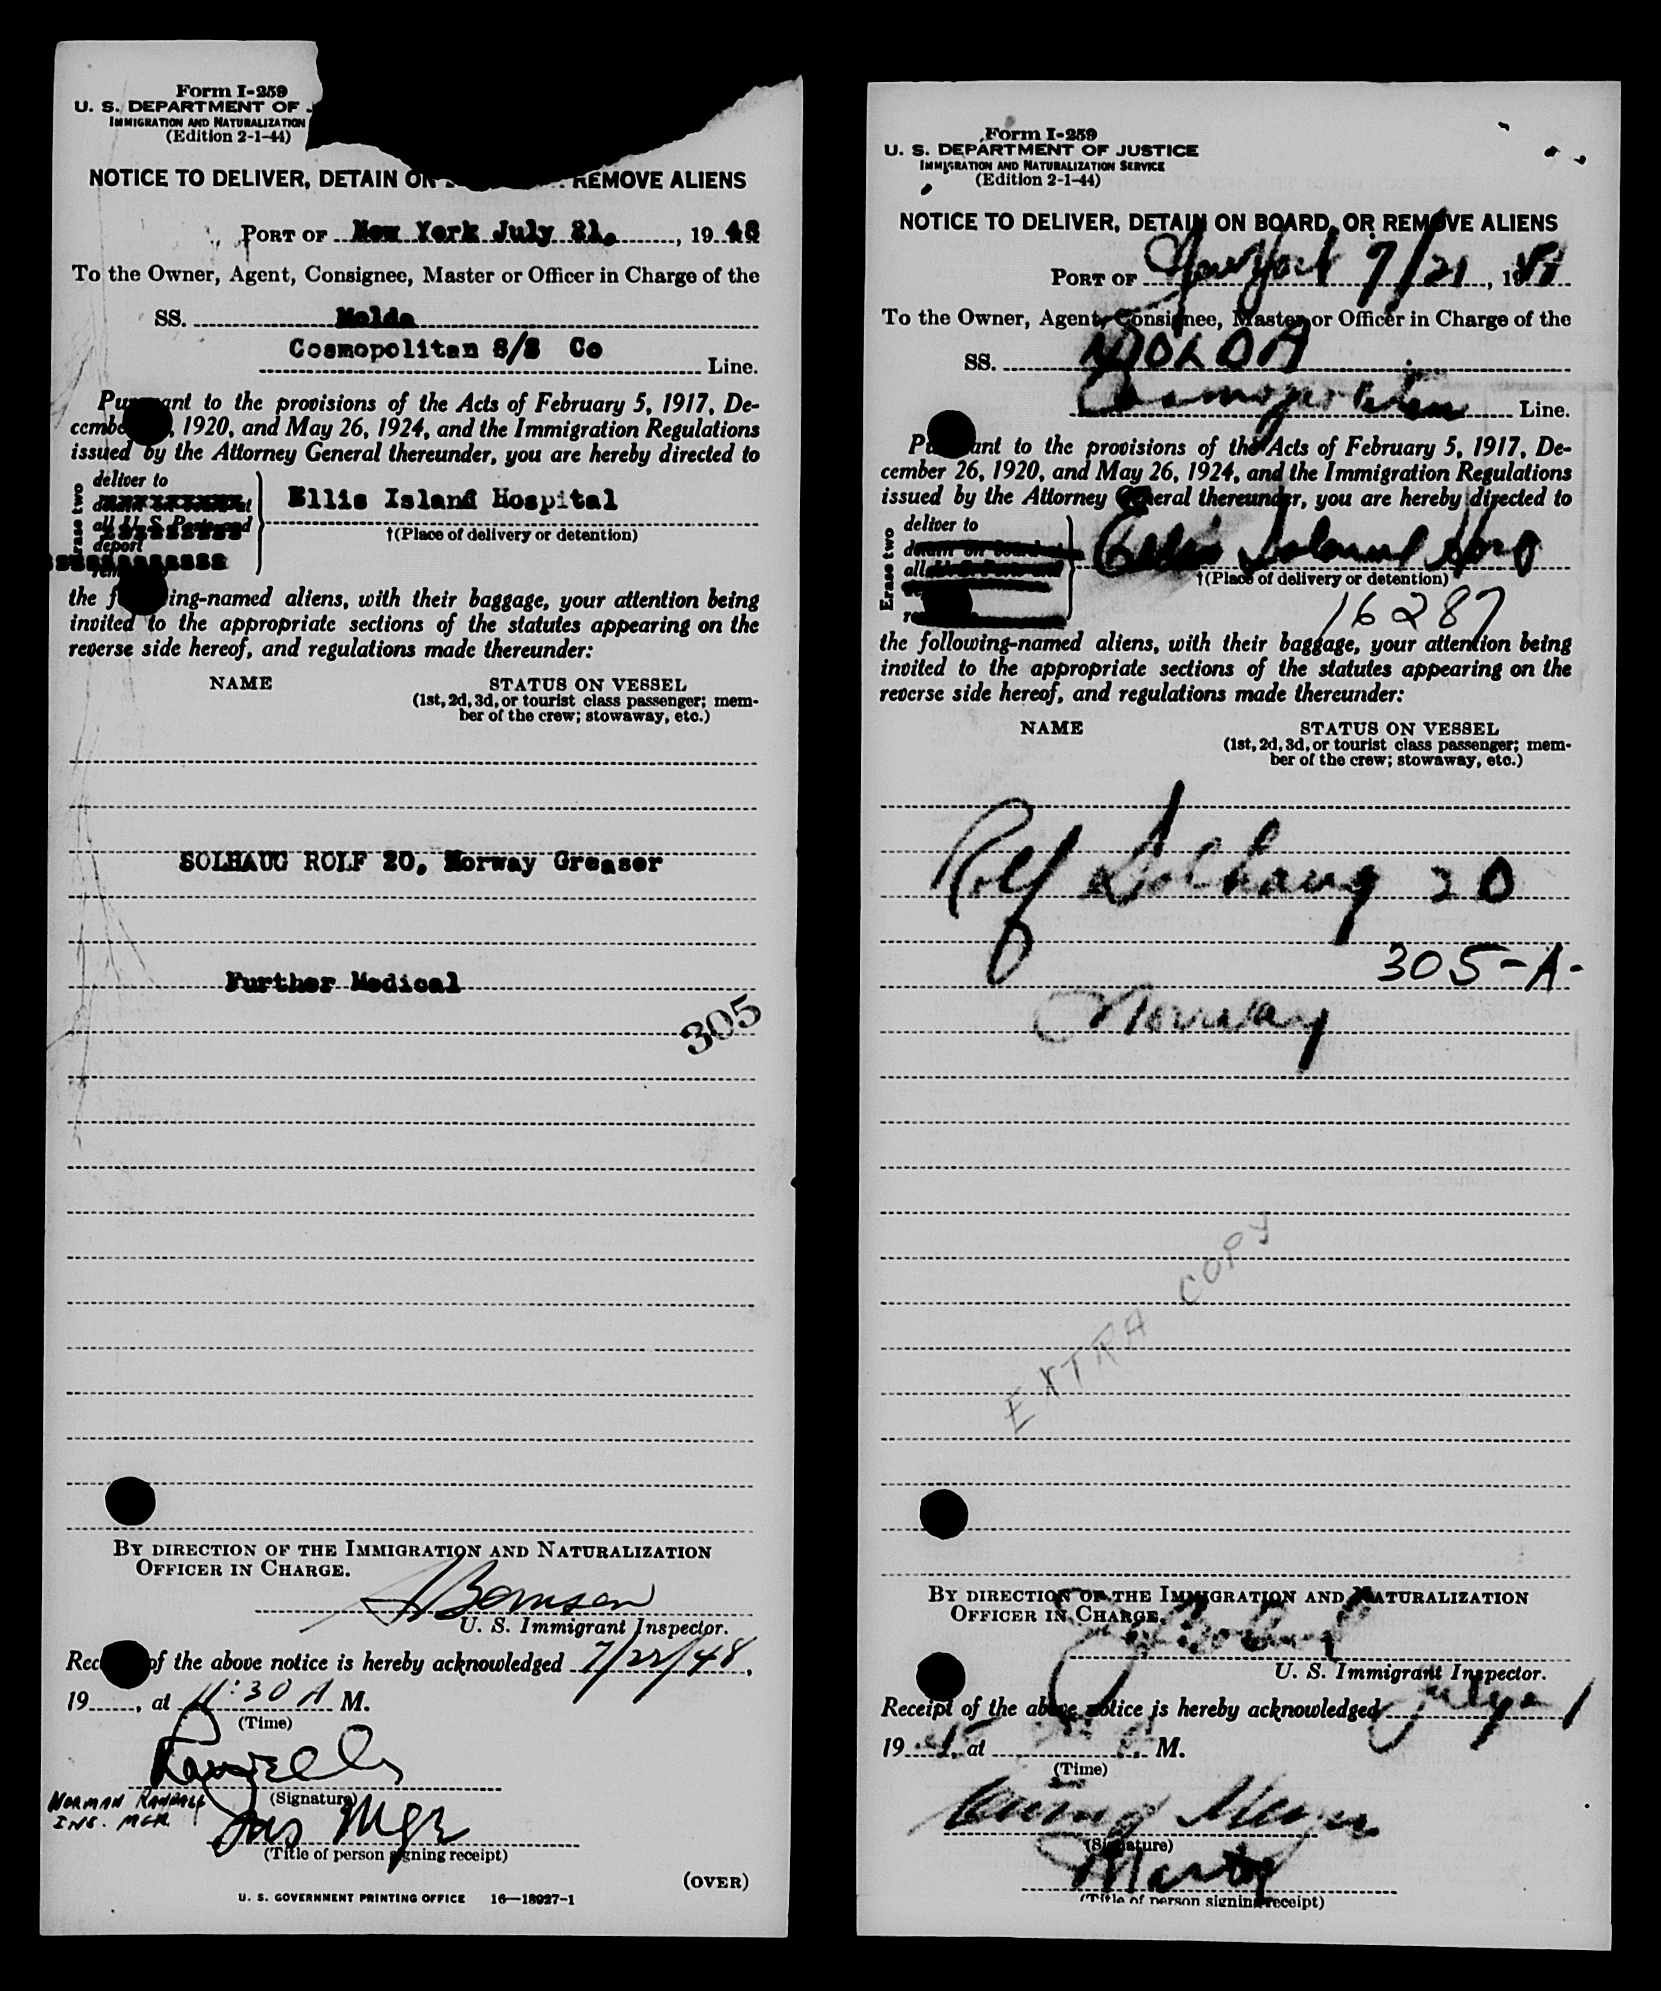 Form I-259
U. S. DEPARTMENT OF
IMMIGRATION AND NATURALIZATION
(Edition 2-1-44)
NOTICE TO DELIVER, DETAIN ON REMOVE ALIENS
PORT OF New York July 21, , 19 48
To the Owner, Agent, Consignee, Master or Officer in Charge of the
SS. Molda
Cosmopolitan S/S Co
Line.
Pursuant to the provisions of the Acts of February 5, 1917, De-
cember , 1920, and May 26, 1924, and the Immigration Regulations
issued by the Attorney General thereunder, you are hereby directed to
Erase two
deliver to
detain on board at
all U. S. Ports and
deport
Ellis Island Hospital
†(Place of delivery or detention)
the following-named aliens, with their baggage, your attention being
invited to the appropriate sections of the statutes appearing on the
reverse side hereof, and regulations made thereunder:
NAME STATUS ON VESSEL
(1st, 2d, 3d, or tourist class passenger; mem-
ber of the crew; stowaway, etc.)
SOLHAUG ROLF 20, Norway Greaser
Further Medical
305
BY DIRECTION OF THE IMMIGRATION AND NATURALIZATION
OFFICER IN CHARGE.
U. S. Immigrant Inspector.
Receipt of the above notice is hereby acknowledged 7/22/48 ,
19 , at 11:30 A M.
(Time)
NORMAN RANDALL
INS. MGR.
(Signature)
Ins Mgr
(Title of person signing receipt)
(OVER)
U. S. GOVERNMENT PRINTING OFFICE 16—18027-1
Form I-259
U. S. DEPARTMENT OF JUSTICE
IMMIGRATION AND NATURALIZATION SERVICE
(Edition 2-1-44)
NOTICE TO DELIVER, DETAIN ON BOARD, OR REMOVE ALIENS
PORT OF New York 7/21 , 19
To the Owner, Agent, Consignee, Master or Officer in Charge of the
SS. MOLDA
Cosmopolitan Line.
Pursuant to the provisions of the Acts of February 5, 1917, De-
cember 26, 1920, and May 26, 1924, and the Immigration Regulations
issued by the Attorney General thereunder, you are hereby directed to
Erase two
deliver to
detain on board at
all
Ellis Island Hosp
†(Place of delivery or detention)
16287
the following-named aliens, with their baggage, your attention being
invited to the appropriate sections of the statutes appearing on the
reverse side hereof, and regulations made thereunder:
NAME STATUS ON VESSEL
(1st, 2d, 3d, or tourist class passenger; mem-
ber of the crew; stowaway, etc.)
Rolf Solhaug 20
305-A-
Norway
EXTRA COPY
BY DIRECTION OF THE IMMIGRATION AND NATURALIZATION
OFFICER IN CHARGE.
U. S. Immigrant Inspector.
Receipt of the above notice is hereby acknowledged
19 , at M.
(Time)
(Signature)
(Title of person signing receipt)